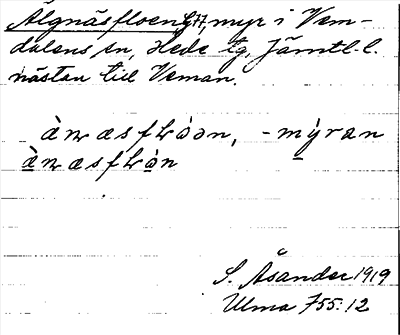 Älgnäsfloen, myr i Vem-
dalens sn, Hede tg, Jämtl. l.
nästan till Veman.
ànnæsfɫòən, -mýran
ànnæsfɫòn
S. Åsander 1919
Ulma 755:12